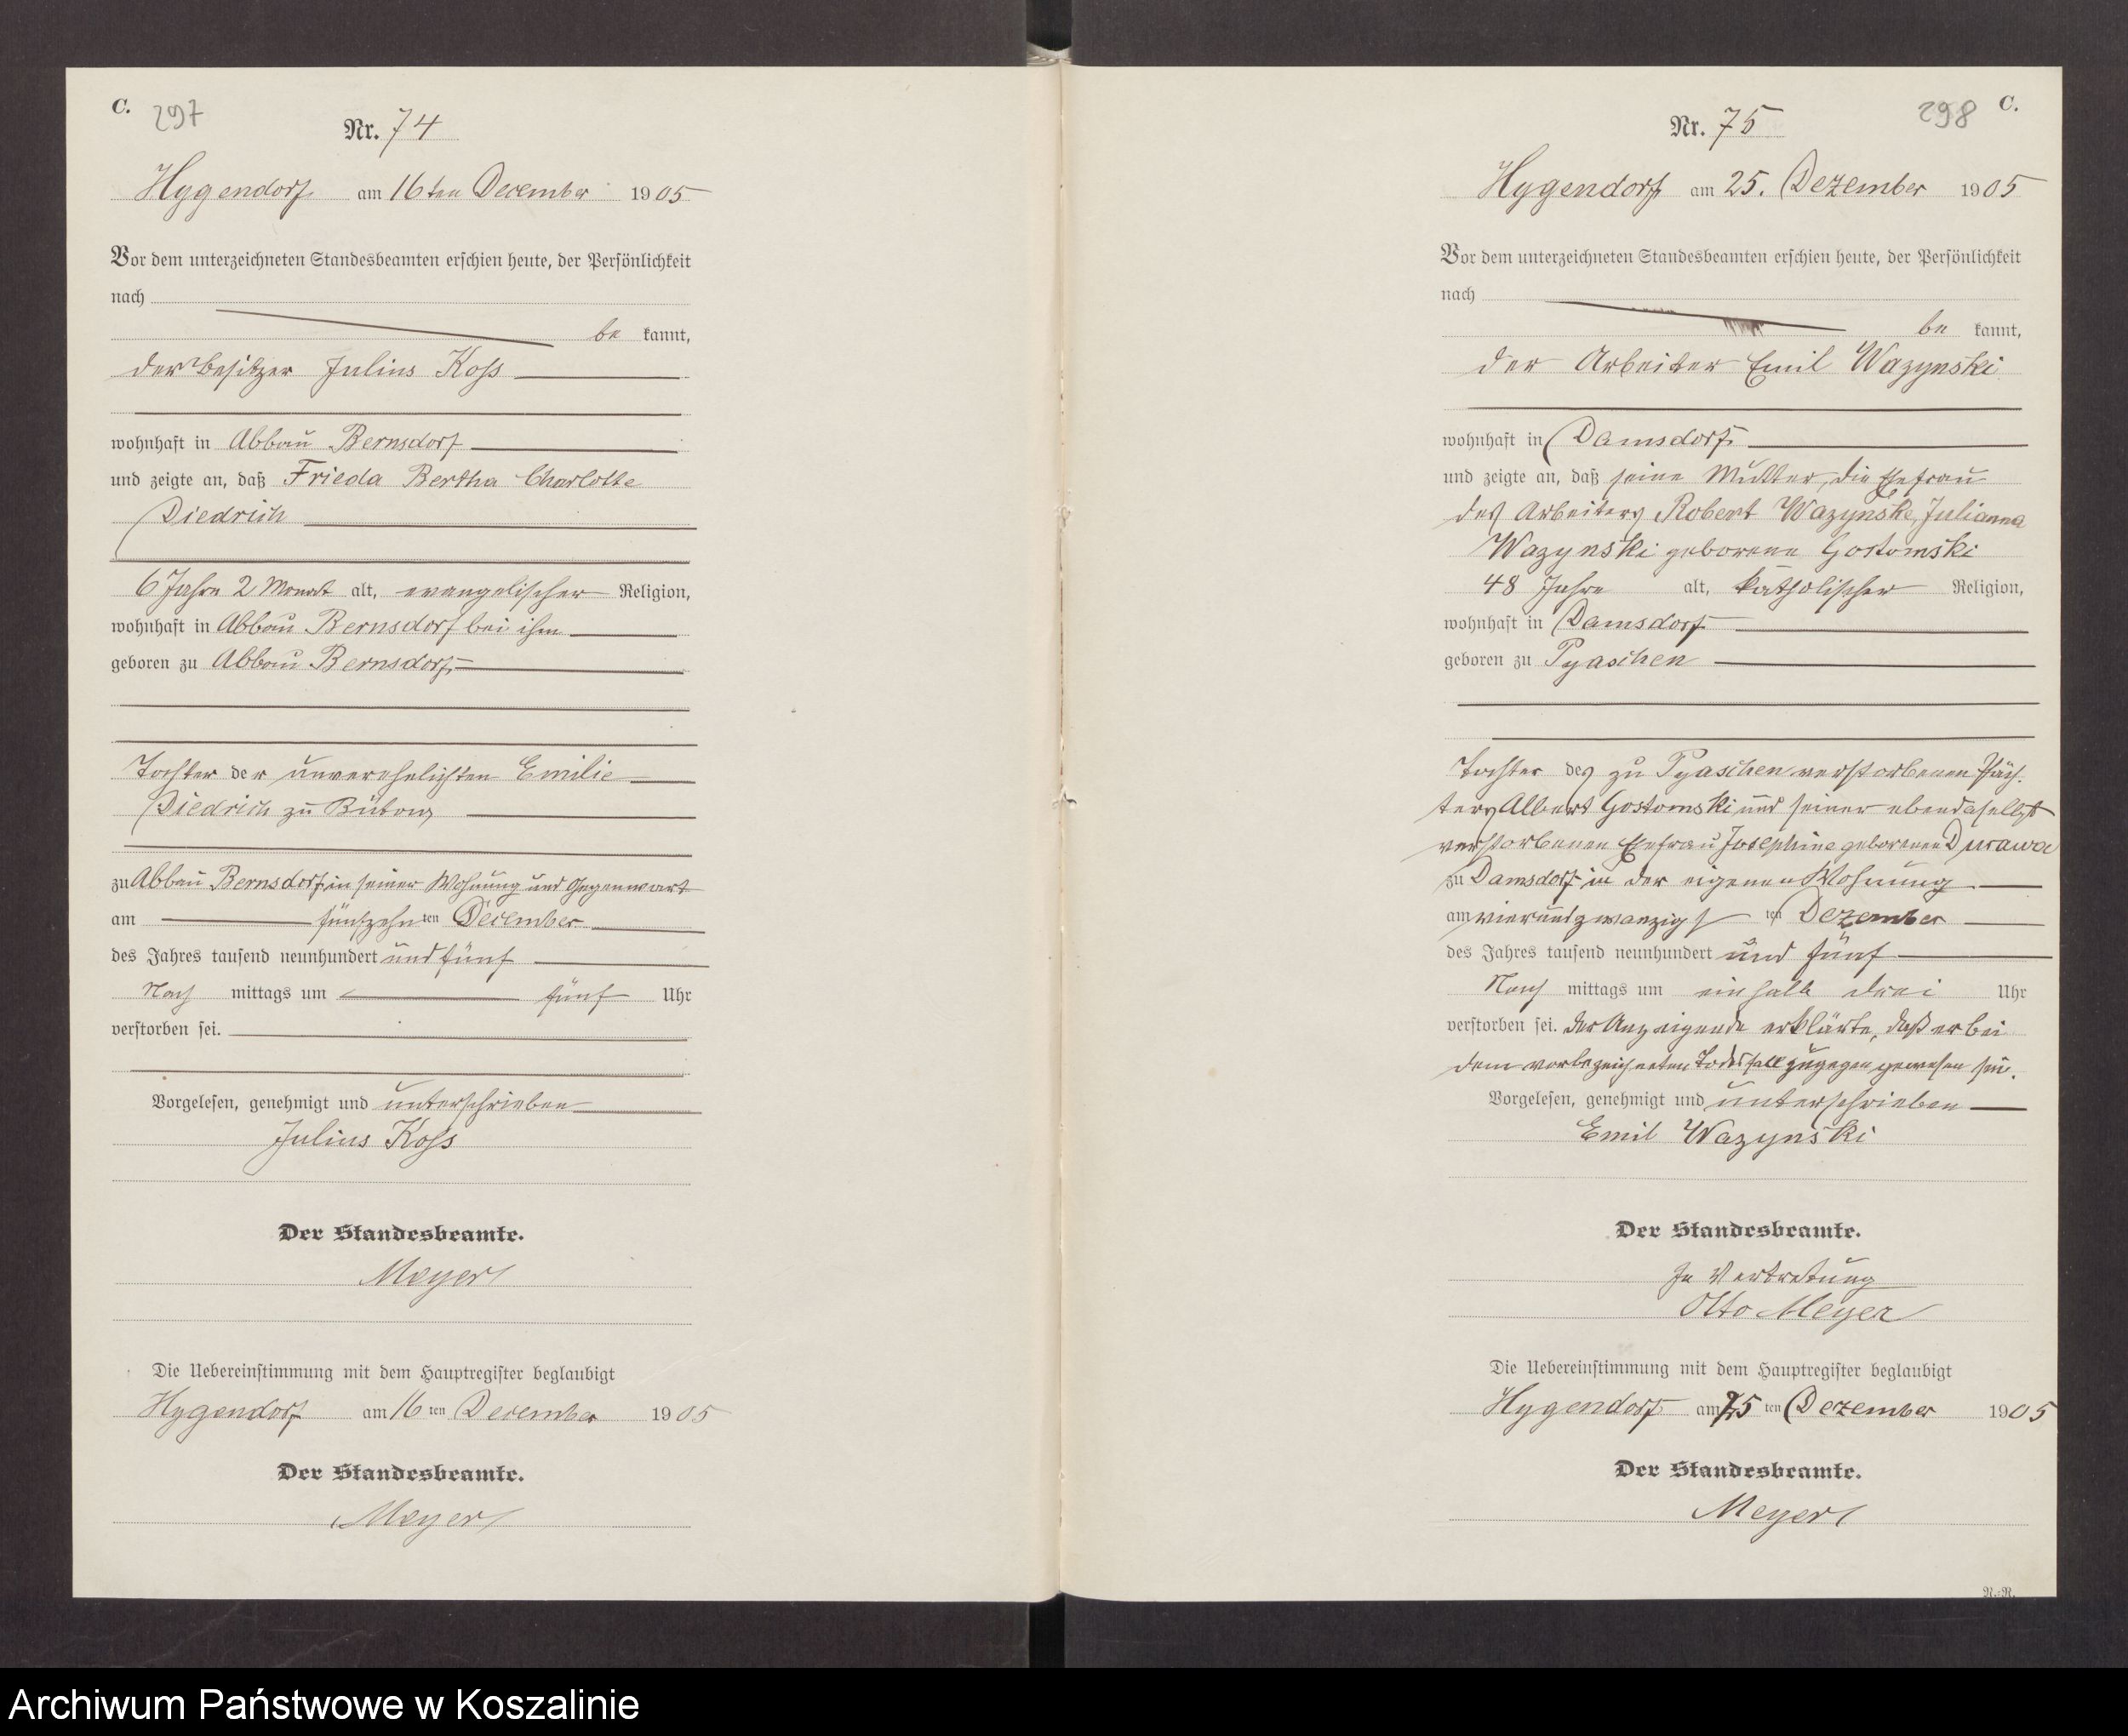 C. 297
Nr. 74
Hygendorf am 16ten December 1905
Vor dem unterzeichneten Standesbeamten erschien heute, der Persönlichkeit
nach
be kannt,
der Besitzer Julius Koss
wohnhaft in Abbau Bernsdorf
und zeigte an, daß Frieda Bertha Charlotte
Diedrich
6 Jahre 2 Monat alt, evangelischer Religion,
wohnhaft in Abbau Bernsdorf bei ihm
geboren zu Abbau Bernsdorf
Tochter der unverehelichten Emilie
Diedrich zu Bütow
zu Abbau Bernsdorf in seiner Wohnung und Gegenwart
am fünfzehnten December
des Jahres tausend neunhundert und fünf
Nach mittags um fünf Uhr
verstorben sei.
Vorgelesen, genehmigt und unterschrieben
Julius Koss
Der Standesbeamte.
Meyer
Die Uebereinstimmung mit dem Hauptregister beglaubigt
Hygendorf am 16ten December 1905
Der Standesbeamte.
Meyer
298 C.
Nr. 75
Hygendorf am 25. Dezember 1905
Vor dem unterzeichneten Standesbeamten erschien heute, der Persönlichkeit
nach
be kannt,
der Arbeiter Emil Wazynski
wohnhaft in Damsdorf
und zeigte an, daß seine Mutter, die Ehefrau
des Arbeiters Robert Wazynski, Julianna
Wazynski geborene Gostomski
48 Jahre alt, katholischer Religion,
wohnhaft in Damsdorf
geboren zu Pyaschen
Tochter des zu Pyaschen verstorbenen Päch-
ters Albert Gostomski und seiner ebendaselbst
verstorbenen Ehefrau Josephine geborenen Durawa
zu Damsdorf in der eigenen Wohnung
am vierundzwanzigsten Dezember
des Jahres tausend neunhundert und fünf
Nach mittags um einhalb drei Uhr
verstorben sei. Der Anzeigende erklärte, daß er bei
dem vorbezeichneten Todesfall zugegen gewesen sei.
Vorgelesen, genehmigt und unterschrieben
Emil Wazynski
Der Standesbeamte.
In Vertretung
Otto Meyer
Die Uebereinstimmung mit dem Hauptregister beglaubigt
Hygendorf am 25ten Dezember 1905
Der Standesbeamte.
Meyer
N.-R.
Archiwum Państwowe w Koszalinie